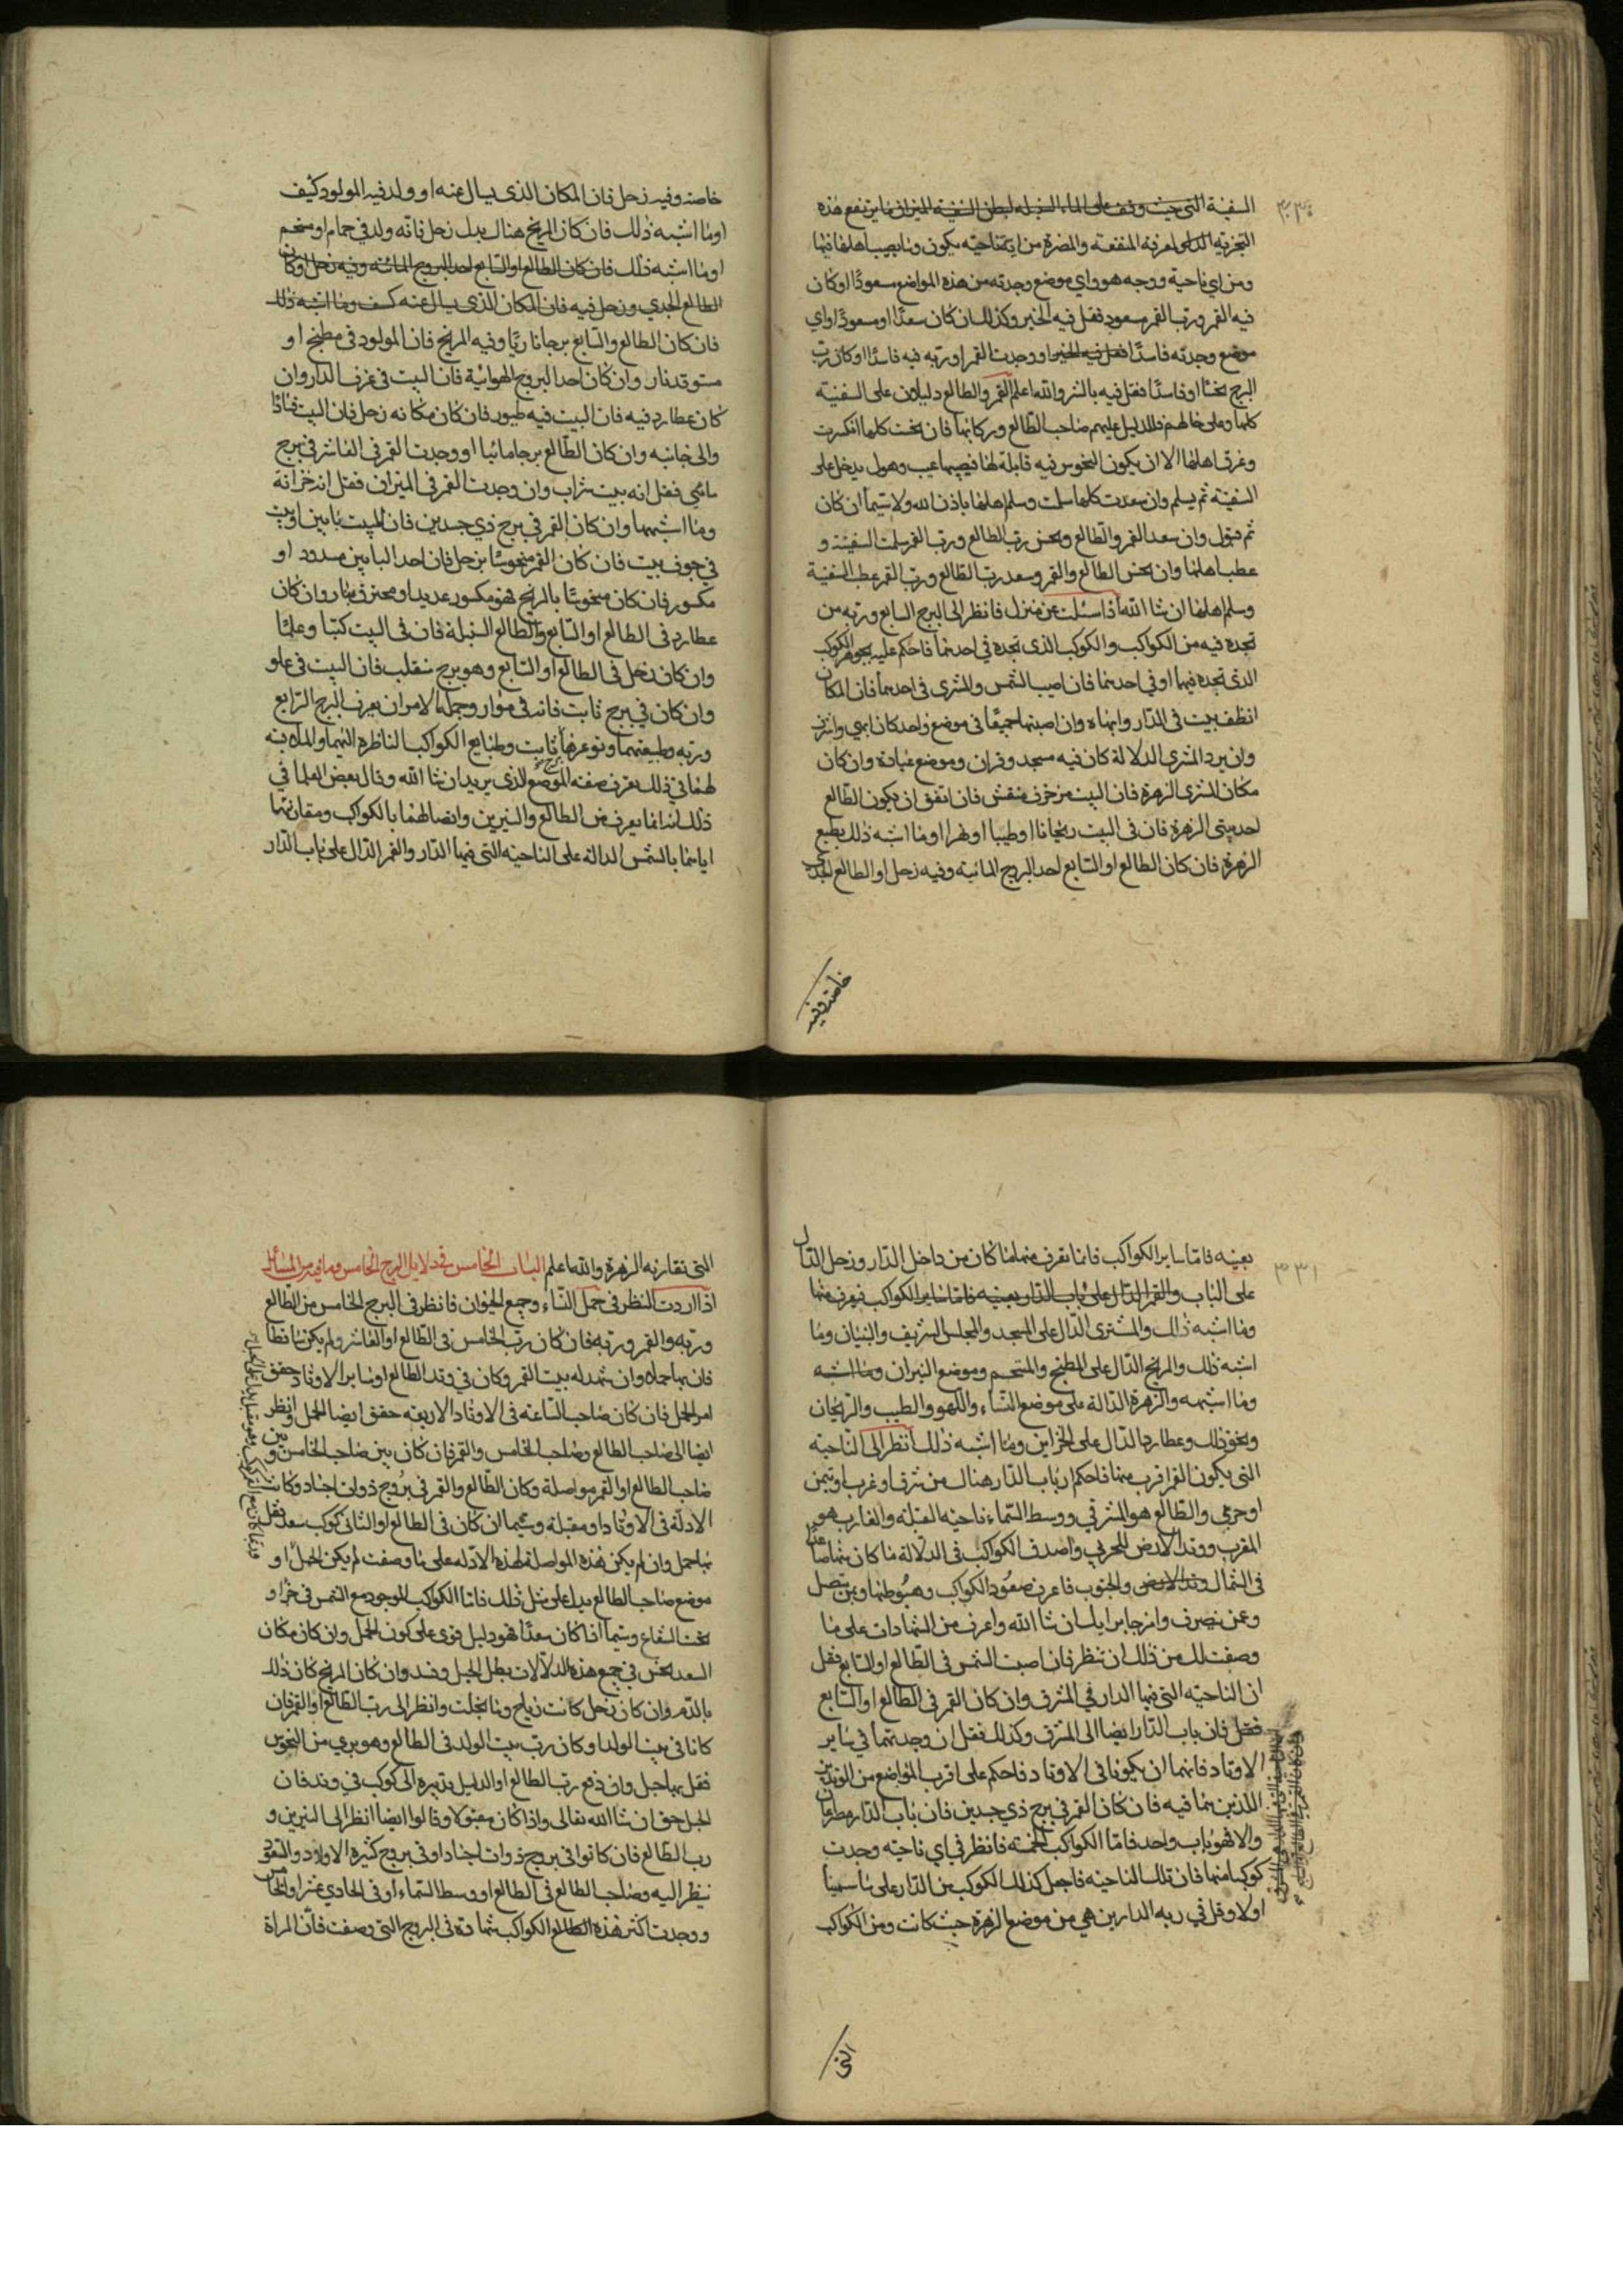 السفينة التي حيث وقف على الماء السنبلة لبطن السفينة الميزان ما يرتفع هذه
التجزئة الذي اعرفه المنفعة والمضرة من اي ناحية يكون وما يصيب اهلها فيها
ومن اي ناحية ووجه هو واي موضع وجدته من هذه المواضع سعودًا او كان
فيه القمر ورب القمر مسعود فقل فيه الخير وكذلك ان كان سعدًا او مسعودًا واي
موضع وجدته فاسدًا فقل فيه الخير او وجدت القمر او ربه فيه فاسدًا او كان رب
البرج نحسًا او فاسدًا فقل فيه بالشر والله اعلم القمر والطالع دليلان على السفينة
كلها وعلى حالهم فالدليل عليهم صاحب الطالع وركابها فان نحست كلها انكسرت
وغرق اهلها الا ان يكون النحوس فيه قابلة لها فيصيبها عيب وهول يدخل على
السفينة ثم يسلم وان سعدت كلها سلمت وسلم اهلها باذن الله ولا سيما ان كان
ثم قبول وان سعد القمر والطالع ونحس رب الطالع ورب القمر سلمت السفينة و
عطب اهلها وان نحس الطالع والقمر وسعد رب الطالع ورب القمر عطب السفينة
وسلم اهلها ان شا الله اذا سئلت عن منزل فانظر الى البرج السابع وربه من
تجده فيه من الكواكب والكوكب الذي تجده في احدهما فاحكم عليه بجوهر الكوكب
الذي تجده فيها او في احدهما فان اصيب الشمس والمشتري في احدهما فان المكان
انظف بيت في الدار وابهاه وان اصبتهما جميعًا في موضع واحد كان ابهى واشرف
وان يرد المشتري الدلالة كان فيه مسجد وقران وموضع عبادة وان كان
مكان المشتري الزهرة فان البيت مزخرف منقش فان اتفق ان يكون الطالع
احد بيتي الزهرة فان في البيت ريحانا او طيبا او نهرا او ما اشبه ذلك بطبع
الزهرة فان كان الطالع او السابع احد البروج المائية وفيه زحل او الطالع الجدي
خاصة وفيه
خاصة وفيه زحل فان المكان الذي يسال عنه او ولد فيه المولود كنيف
او ما اشبه ذلك فان كان المريخ هناك بدل زحل فانه ولد في حمام او مستحم
او ما اشبه ذلك فان كان الطالع او السابع احد البروج المائية وفيه زحل او كان
الطالع الجدي وزحل فيه فان المكان الذي يسال عنه كنيف وما اشبه ذلك
فان كان الطالع والسابع برجا ناريًا وفيه المريخ فان المولود في مطبخ او
مستوقد نار وان كان احد البروج الهوائية فان البيت في غرف الدار وان
كان عطارد فيه فان البيت فيه طيور فان كان مكانه زحل فان البيت
والى جانبه وان كان الطالع برجا مائيا او وجدت القمر في العاشر في برج
مائي فقل انه بيت شراب وان وجدت القمر في الميزان فقل انه خزانة
وما اشبهها وان كان القمر في برج ذي جسدين فان للبيت بابين او بيت
في جوف بيت فان كان القمر منحوسًا بزحل فان احد البابين مسدود او
مكسور فان كان منحوسًا بالمريخ فهو مكسور بحديد او محترق بنار وان كان
عطارد في الطالع او السابع والطالع السنبلة فان في البيت كتبًا وعلمًا
وان كان زحل في الطالع او السابع وهو برج منقلب فان البيت في علو
وان كان في برج ثابت فانه في قرار وجملة الامر ان يعرف البرج الرابع
وربه وطبيعتهما ونوعهما ثابت وطبايع الكواكب الناظرة اليهما والدلالة
لهما في ذلك يعرف صفة الموضع الذي يريد ان شا الله وقال بعض العلما في
ذلك انه انما يعرف من الطالع والنيرين واتصالهما بالكواكب ومقارنتها
اياهما بالشمس الدالة على الناحية التي فيها الدار والقمر الدال على باب الدار
بعينه فاما ساير الكواكب فانما تعرف منها ما كان من داخل الدار وزحل الدال
على الباب والقمر الدال على باب الدار بعينه فاما ساير الكواكب فيعرف منها
وما اشبه ذلك والمشتري الدال على المسجد والمجلس الشريف والبنيان وما
اشبه ذلك والمريخ الدال على المطبخ والمستحم وموضع النيران وما اشبه
وما اشبهه والزهرة الدالة على موضع النساء واللهو والطيب والريحان
ونحو ذلك وعطارد الدال على الخزاين وما اشبه ذلك انظر الى الناحية
التي يكون القمر اقرب منها فاحكم ان باب الدار هنالك من شرق او غرب او تيمن
او جربي والطالع هو المشرق ووسط السماء ناحية القبلة والغارب هو
المغرب ووتد الارض الجربي واصدق الكواكب في الدلالة ما كان منها صاعدًا
في الشمال وتد الارض والجنوب فاعرف صعود الكواكب وهبوطها وبمن يتصل
وعن ينصرف وامزجها برايك ان شا الله واعرف من الشهادات على ما
وصفت لك من ذلك ان تنظر فان اصبت الشمس في الطالع او السابع فقل
ان الناحية التي فيها الدار في المشرق وان كان القمر في الطالع او السابع
فقل فان باب الدار ايضا الى المشرق وكذلك فقل ان وجدتهما في ساير
الاوتاد فانهما ان يكونا في الاوتاد فاحكم على اقرب المواضع من الوتدين
اللذين هما فيه فان كان القمر في برج ذي جسدين فان باب الدار مطرقان
والا فهو باب واحد فاما الكواكب الخمسة فانظر في اي ناحية وجدت
كوكبا منها فان تلك الناحية فاجعل كذلك الكوكب من الدار على ما سمينا
اولا وقل في ربه الدار من هي من موضع الزهرة حيث كانت ومن الكواكب
التي
التي تقارنه الزهرة والله اعلم الباب الخامس في دلايل البرج الخامس وما فيه من المسائل
اذا اردت النظر في حمل النساء وجميع الحيوان فانظر في البرج الخامس من الطالع
وربه والقمر وربه فان كان رب الخامس في الطالع او العاشر ولم يكن ساقطا
فان بها حملا وان شهد له بيت القمر وكان في وتد الطالع او ساير الاوتاد حقق
امر الحمل فان كان صاحب الساعة في الاوتاد الاربعة حقق ايضا الحمل وانظر
ايضا الى صاحب الطالع وصاحب الخامس والقمر فان كان بين صاحب الخامس وبين
صاحب الطالع او القمر مواصلة وكان الطالع والقمر في بروج ذوات اجساد وكانت
الادلة في الاوتاد او مقبلة وسيما ان كان في الطالع او الثاني كوكب سعد فقل
بها حمل وان لم يكن هذه المواصلة لهذه الادلة على ما وصفت لم يكن الحبل او
موضع صاحب الطالع يدل على مثل ذلك فاما الكواكب الموجود مع الشمس في
تحت الشعاع وسيما اذا كان سعدًا فهو دليل قوي على كون الحمل وان كان مكان
السعد نحس في جميع هذه الدلالات بطل الحبل وفسد وان كان المريخ كان ذلك
بالدم وان كان زحل كانت رياح وما انحلت وانظر الى رب الطالع او القمر فان
كانا في بيت الولد او كان رب بيت الولد في الطالع وهو بري من النحوس
فقل بها حبل وان دفع رب الطالع او الدليل تدبيره الى كوكب في وتد فان
الحبل حق ان شا الله تعالى واذا كان مقبولا وقالوا ايضا انظر الى النيرين و
رب الطالع فان كانوا في بروج ذوات اجساد او في بروج كثيرة الاولاد والسعود
ينظر اليه وصاحب الطالع في الطالع او وسط السماء او في الحادي عشر او الخامس
ووجدت اكثر هذه الطالع الكواكب شهادة في البروج التي وصفت فان المراة